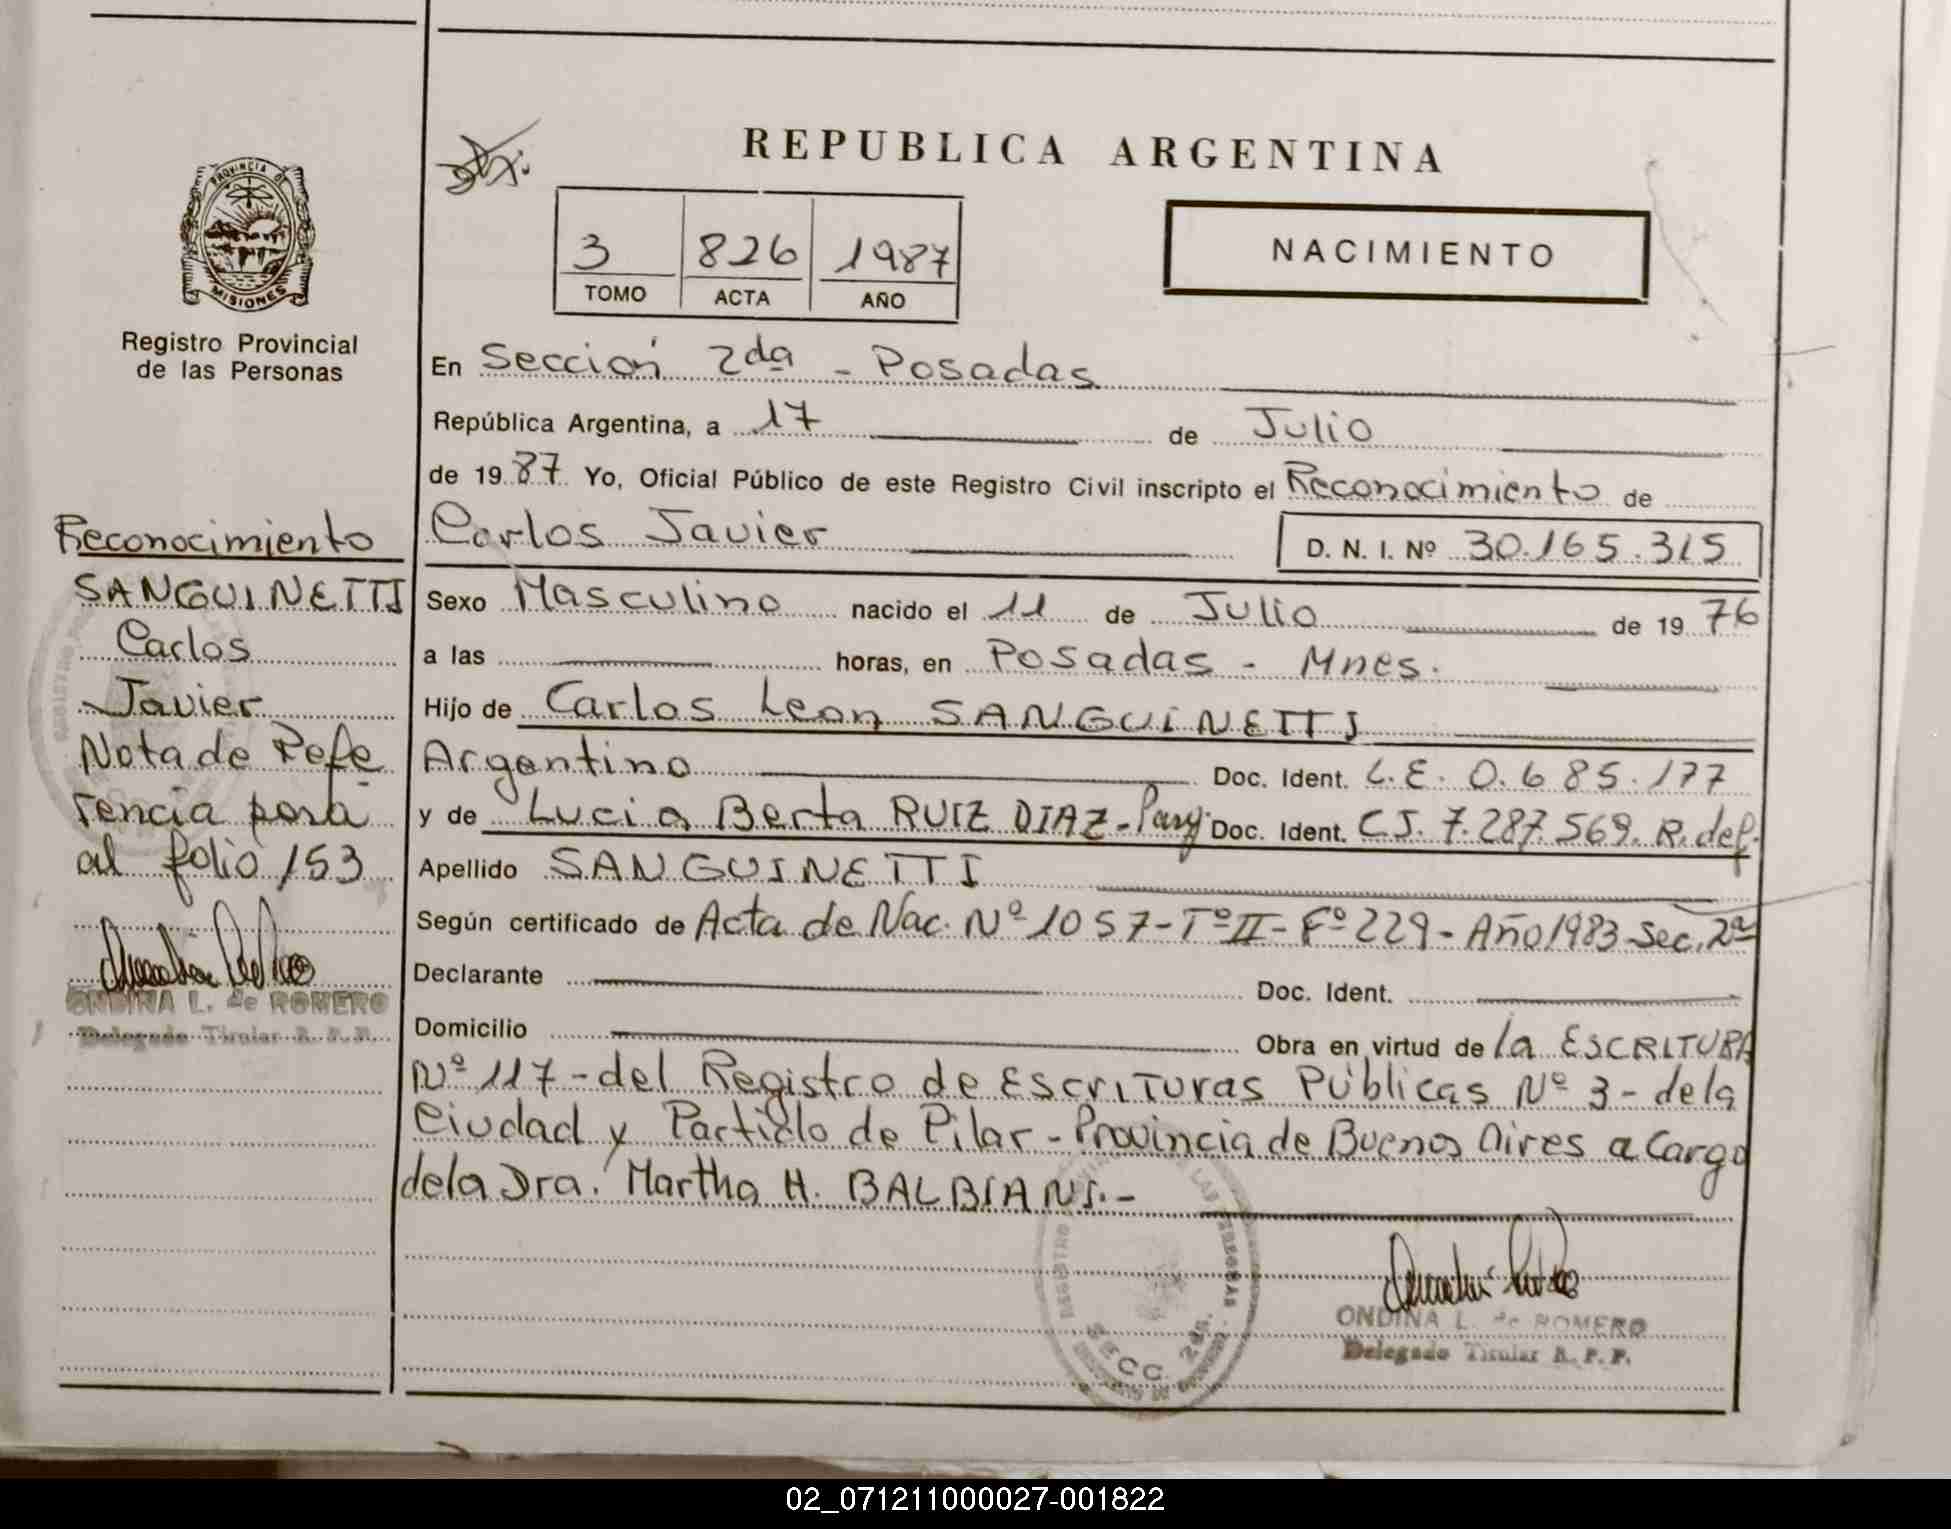 REPUBLICA ARGENTINA
PROVINCIA DE
MISIONES
Registro Provincial
de las Personas
3 826 1987
TOMO ACTA AÑO
NACIMIENTO
En Sección 2da - Posadas
República Argentina, a 17 de Julio
de 1987 Yo, Oficial Público de este Registro Civil inscripto el Reconocimiento de
Carlos Javier D. N. I. Nº 30.165.315
Sexo Masculino nacido el 11 de Julio de 1976
a las horas, en Posadas - Mnes.
Hijo de Carlos Leon SANGUINETTI
Argentino Doc. Ident. L.E. 0.685.177
y de Lucia Berta RUIZ DIAZ - Pary. Doc. Ident. C.I. 7.287.569. R. def.
Apellido SANGUINETTI
Según certificado de Acta de Nac. Nº 1057 - Tº II - Fº 229 - Año 1983 - Sec. 2ª
Declarante Doc. Ident.
Domicilio Obra en virtud de la ESCRITURA
Nº 117 - del Registro de Escrituras Públicas Nº 3 - de la
Ciudad y Partido de Pilar - Provincia de Buenos Aires a cargo
de la Dra. Martha H. BALBIANI. -
Reconocimiento
SANGUINETTI
Carlos
Javier
Nota de Refe
rencia pasa
al folio 153
ONDINA L. de ROMERO
Delegado Titular R. P. P.
SECC. 2da.
ONDINA L. de ROMERO
Delegado Titular R. P. P.
02_071211000027-001822